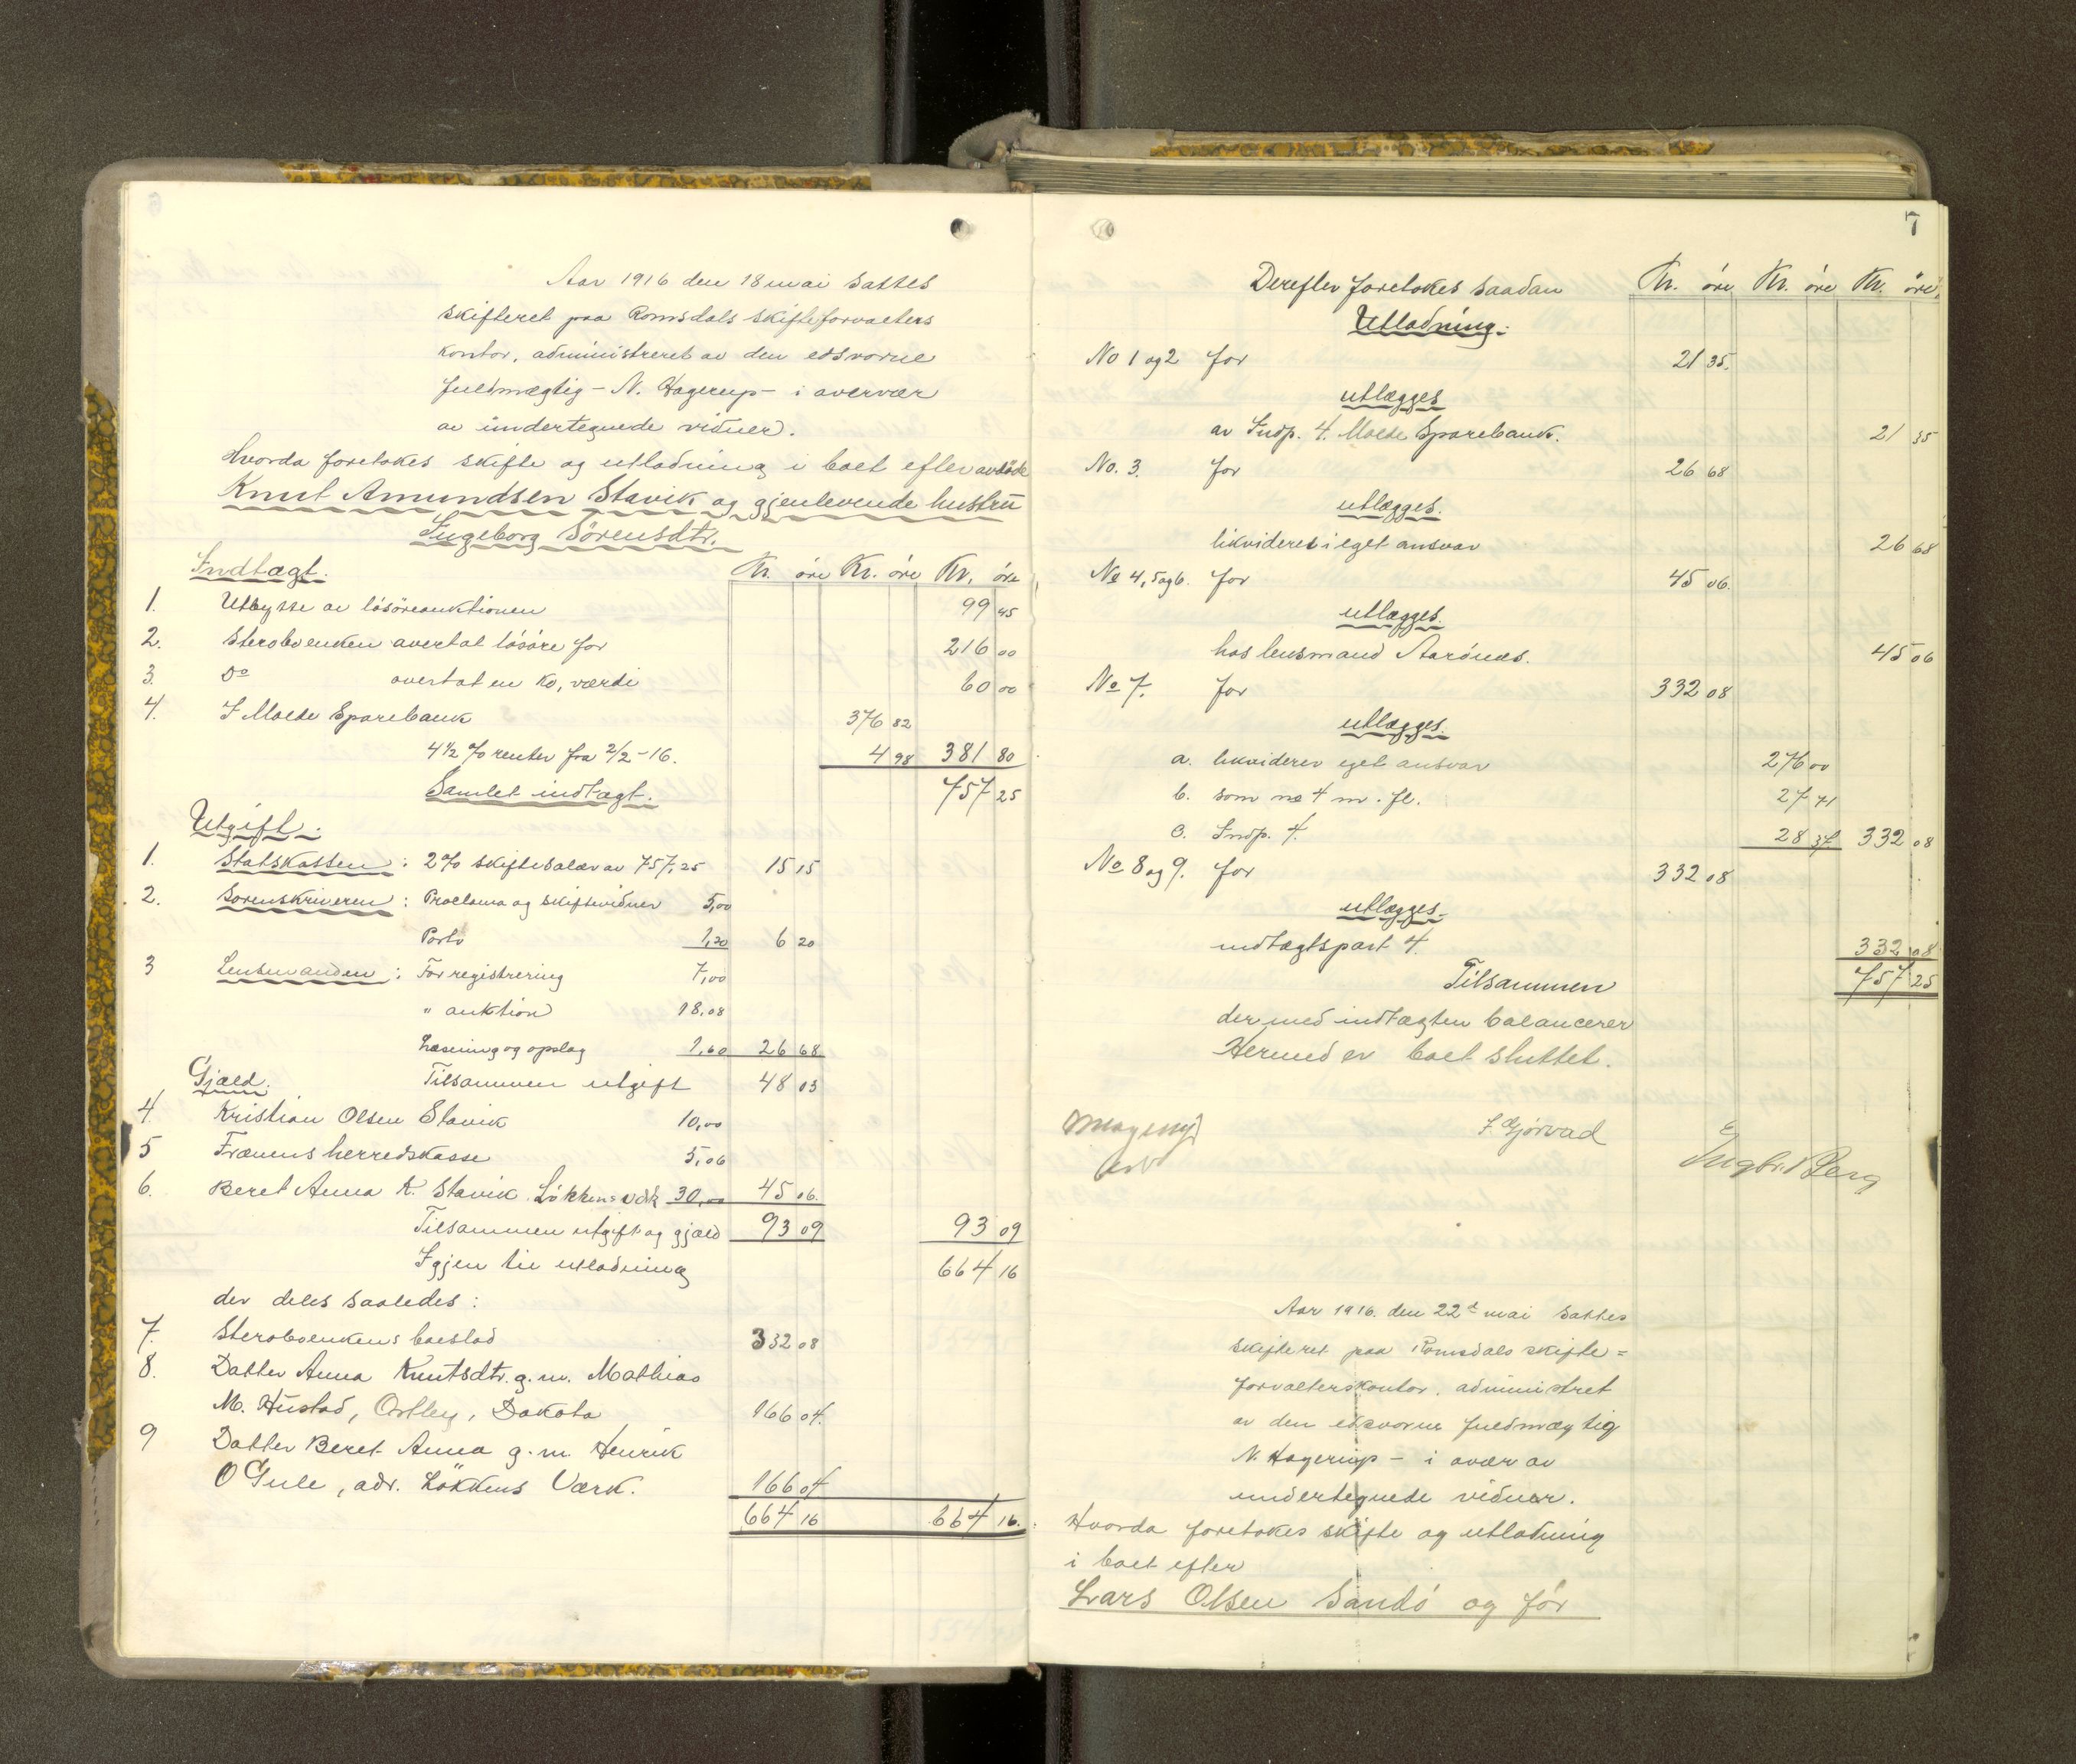 Aar 1916 den 18 mai sattes
skifteret paa Romsdals skifteforvalters
kontor, administreret av den edsvorne
fuldmægtig - N. Hagerup - i overvær
av undertegnede vidner.
Hvorda foretokes skifte og utlodning i boet efter avdöde
Knut Amundsen Stavik og gjenlevende hustru
Ingeborg Sörensdtr.
Indtægt. Kr. öre Kr. öre Kr. öre
1. Utbytte av lösöreauktionen 99 45
2. Sterboenken overtat lösöre for 216 00
3. Do overtat en ko, værdi 60 00
4. I Molde Sparebank 376 82
4 1/2 % renter fra 2/2-16. 4 98 381 80
Samlet indtægt. 757 25
Utgift.
1. Statskassen: 2% skiftesalær av 757,25 15 15
2. Sorenskriveren: Proclama og skiftevidner 5,00
Porto 1,20 6 20
3 Lensmanden: For registrering 7,00
" auktion 18,08
Læsning og opslag 1,60 26 68
Gjæld. Tilsammen utgift 48 03
4. Kristian Olsen Stavik 10,00
5 Frænens herredskasse 5,06
6. Beret Anna K. Stavik Lökkens værk 30,00 45 06.
Tilsammen utgift og gjæld 93 09 93 09
Igjen til utlodning 664 16
der deles saaledes:
7. Sterboenkens boeslod 332 08
8. Datter Anna Knutsdtr. g.m. Mathias
M. Hustad, Dakota 166 04.
9 Datter Beret Anna g.m. Henrik
O Gule, adr. Lökkens Værk. 166 04
664 16 664 16.
7
Derefter foretokes saadan Kr. öre Kr. öre Kr. öre
Utlodning:
No 1 og 2 for 21 35.
utlægges
av Indp. 4. Molde Sparebank. 21 35
No. 3. for 26 68
utlægges.
likvideres i eget ansvar 26 68
No 4, 5 og 6. for 45 06.
utlægges.
hos lensmand Aarönes. 45 06
No 7. for 332 08
utlægges.
a. likviderer eget ansvar 276 00
b. som no 4 m. fl. 27 71
c. Indp. 4. 28 37 332 08
No 8 og 9. for 332 08
utlægges.
indtægtspost 4. 332 08
Tilsammen 757 25
der med indtægten balancerer
Hermed er boet sluttet.
Ingbr. Berg
Aar 1916. den 22d mai sattes
skifteret paa Romsdals skifte=
forvalterskontor. administret
av den edsvorne fuldmægtig
N. Hagerup - i overvær av
undertegnede vidner.
Hvorda foretokes skifte og utlodning
i boet efter
Lars Olsen Sandö og för